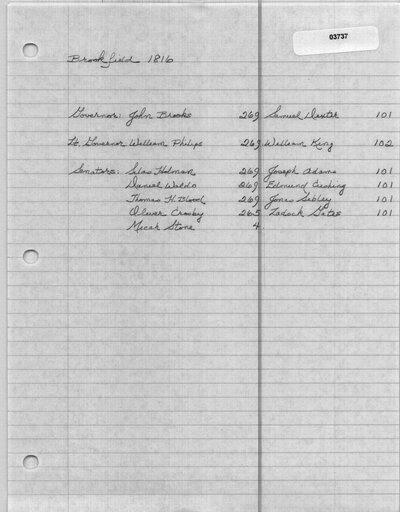 03737
Brookfield 1816
Governor: John Brooks 269 Samuel Dexter 101
Lt. Governor William Philips 269 William King 102
Senators: Silas Holman 269 Joseph Adams 101
Daniel Waldo 269 Edmund Cushing 101
Thomas H. Blood 269 Jonas Sibley 101
Oliver Crosby 265 Zadock Gates 101
Micah Stone 4